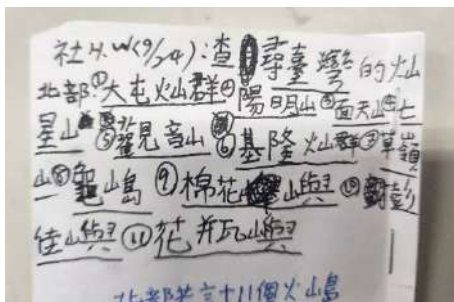 社H.W(9/24):查尋臺灣的火山
北部:①大屯火山群②陽明山③面天山④七
星山⑤觀音山⑥基隆火山群⑦草嶺
山⑧龜山島⑨棉花山嶼⑩彭
佳山嶼⑪花并瓦山嶼
北部共言十11個火山島